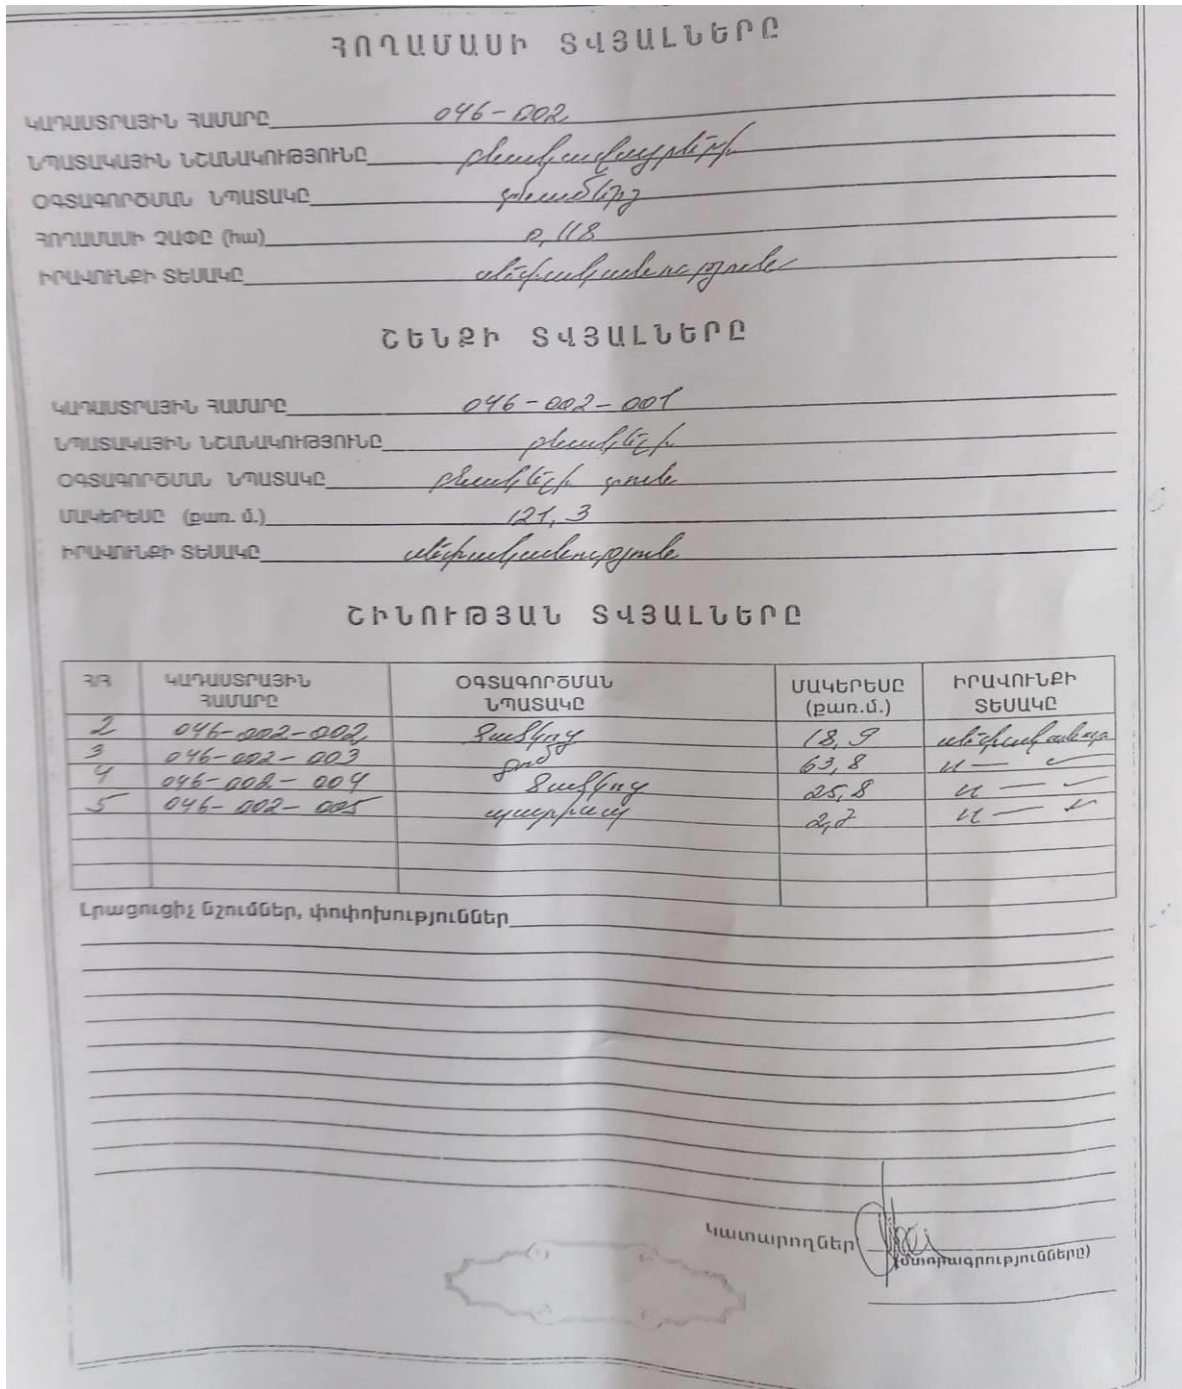 ՀՈՂԱՄԱՍԻ ՏՎՅԱԼՆԵՐԸ
ԿԱԴԱՍՏՐԱՅԻՆ ՀԱՄԱՐԸ 046-002
ՆՊԱՏԱԿԱՅԻՆ ՆՇԱՆԱԿՈՒԹՅՈՒՆԸ բնակավայրերի
ՕԳՏԱԳՈՐԾՄԱՆ ՆՊԱՏԱԿԸ տնամերձ
ՀՈՂԱՄԱՍԻ ՉԱՓԸ (հա) 0,118
ԻՐԱՎՈՒՆՔԻ ՏԵՍԱԿԸ սեփականություն
ՇԵՆՔԻ ՏՎՅԱԼՆԵՐԸ
ԿԱԴԱՍՏՐԱՅԻՆ ՀԱՄԱՐԸ 046-002-001
ՆՊԱՏԱԿԱՅԻՆ ՆՇԱՆԱԿՈՒԹՅՈՒՆԸ բնակելի
ՕԳՏԱԳՈՐԾՄԱՆ ՆՊԱՏԱԿԸ բնակելի տուն
ՄԱԿԵՐԵՍԸ (քառ. մ.) 121,3
ԻՐԱՎՈՒՆՔԻ ՏԵՍԱԿԸ սեփականություն
ՇԻՆՈՒԹՅԱՆ ՏՎՅԱԼՆԵՐԸ
Հ/Հ ԿԱԴԱՍՏՐԱՅԻՆ ՀԱՄԱՐԸ ՕԳՏԱԳՈՐԾՄԱՆ ՆՊԱՏԱԿԸ ՄԱԿԵՐԵՍԸ (քառ.մ.) ԻՐԱՎՈՒՆՔԻ ՏԵՍԱԿԸ
2 046-002-002 Ծածկոց 18,9
3 046-002-003 գոմ 63,8 〃 — 〃
4 046-002-004 Ծածկոց 25,8 〃 — 〃
5 046-002-005 〃 — 〃
Լրացուցիչ նշումներ, փոփոխություններ
Կատարողներ
(ստորագրությունները)